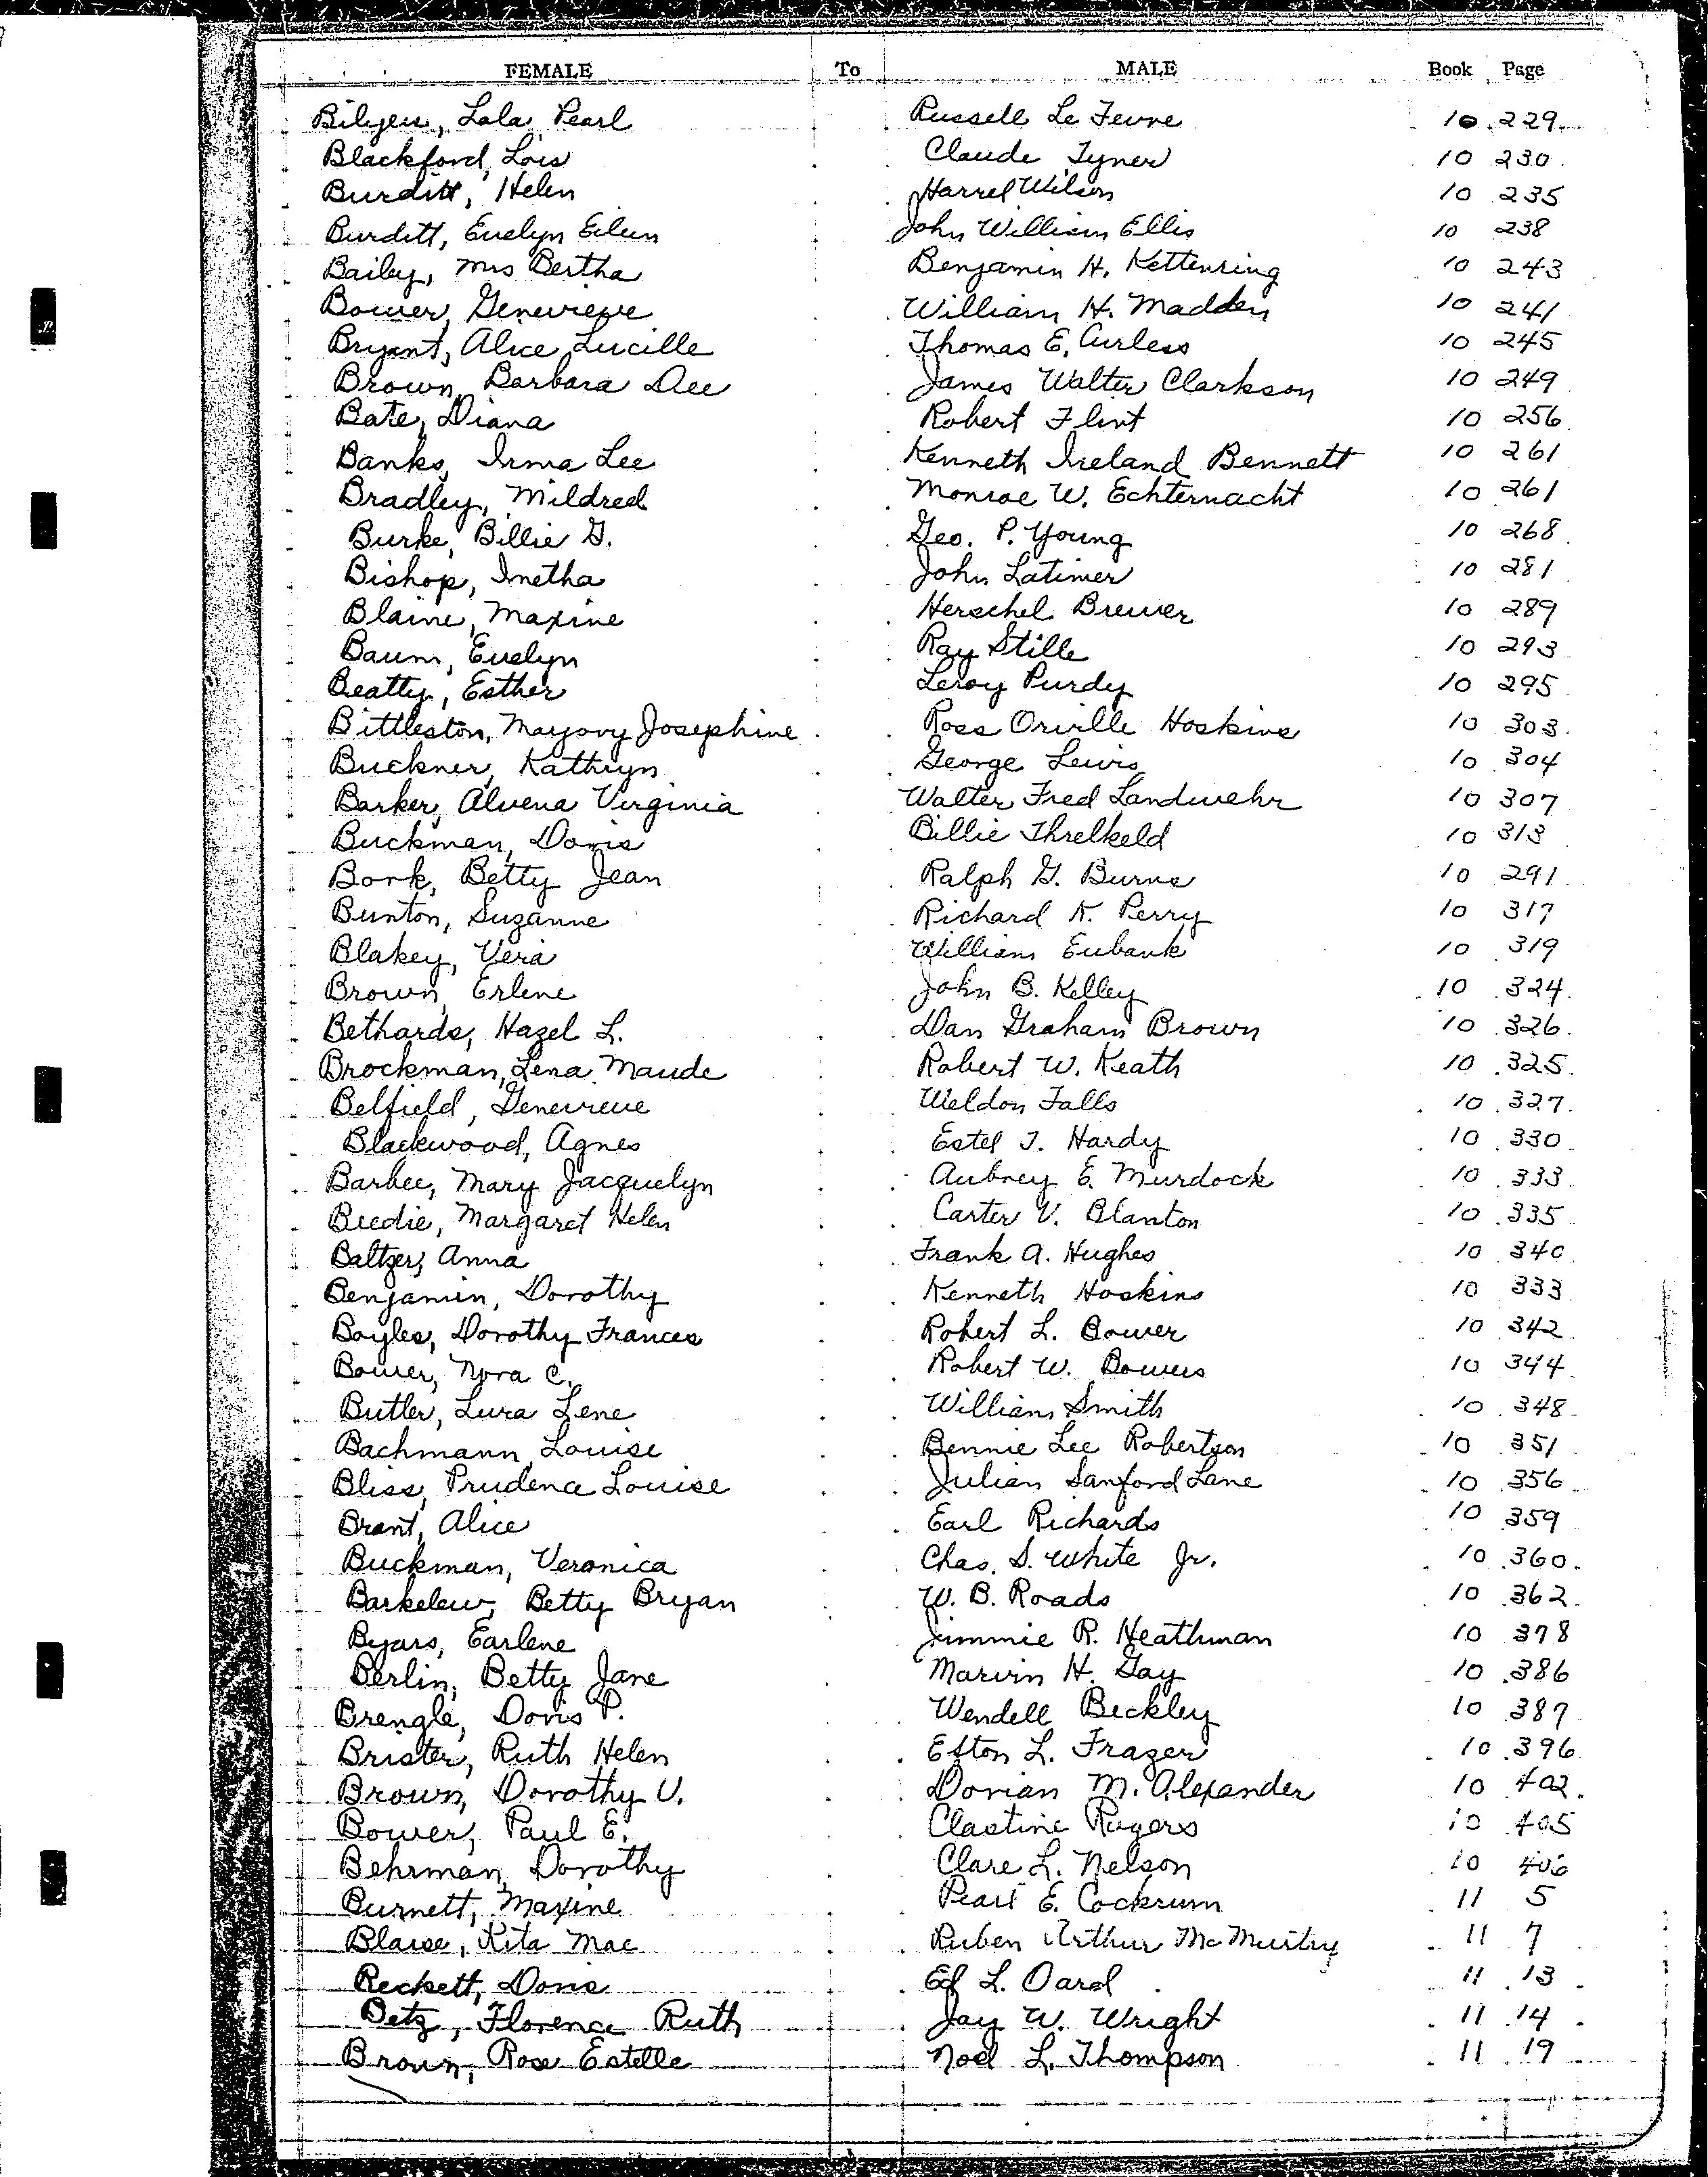 FEMALE To MALE Book Page
Bilyeu, Lola Pearl Russell Le Fevre 10 229
Blackford, Lois Claude Tyner 10 230
Burditt, Helen Harrel Wilson 10 235
Burditt, Evelyn Eileen John William Ellis 10 238
Bailey, Mrs Bertha Benjamin H. Kettenring 10 243
Bower, Genevieve William H. Madden 10 241
Bryant, Alice Lucille Thomas E. Curless 10 245
Brown, Barbara Dee James Walter Clarkson 10 249
Bate, Diana Robert Flint 10 256
Banks, Irma Lee Kenneth Ireland Bennett 10 261
Bradley, Mildred Monroe W. Echternacht 10 261
Burke, Billie G. Geo. P. Young 10 268
Bishop, Inetha John Latimer 10 281
Blaine, Maxine Herschel Brewer 10 289
Baum, Evelyn Ray Stille 10 293
Beatty, Esther Leroy Purdy 10 295
Bittleston, Mayovy Josephine Ross Orville Hoskins 10 303
Buckner, Kathryn George Lewis 10 304
Barker, Alvena Virginia Walter Fred Landwehr 10 307
Buckman, Doris Billie Threlkeld 10 313
Bork, Betty Jean Ralph G. Burns 10 291
Bunton, Suzanne Richard K. Perry 10 317
Blakey, Vera William Eubank 10 319
Brown, Erlene John B. Kelley 10 324
Bethards, Hazel L. Dan Graham Brown 10 326
Brockman, Lena Maude Robert W. Keath 10 325
Belfield, Genevieve Weldon Falls 10 327
Blackwood, Agnes Estel T. Hardy 10 330
Barbee, Mary Jacquelyn Aubrey E. Murdock 10 333
Beedie, Margaret Helen Carter V. Blanton 10 335
Baltzer, Anna Frank A. Hughes 10 340
Benjamin, Dorothy Kenneth Hoskins 10 333
Boyles, Dorothy Frances Robert L. Bower 10 342
Bower, Nora C. Robert W. Bowers 10 344
Butler, Lura Lene William Smith 10 348
Bachmann, Louise Bennie Lee Robertson 10 351
Bliss, Prudence Louise Julian Sanford Lane 10 356
Brant, Alice Earl Richards 10 359
Buckman, Veronica Chas. S. White Jr. 10 360
Barkelew, Betty Bryan W. B. Roads 10 362
Byars, Earlene Jimmie R. Heathman 10 378
Berlin, Betty Jane Marvin H. Gay 10 386
Brengle, Doris P. Wendell Beckley 10 387
Brister, Ruth Helen Efton L. Frazer 10 396
Brown, Dorothy V. Dorian M. Alexander 10 402
Bower, Paul E. Clastine Rogers 10 405
Behrman, Dorothy Clare L. Nelson 10 406
Burnett, Maxine Pearl E. Cockrum 11 5
Blaise, Rita Mae Ruben Arthur McMurtry 11 7
Beckett, Doris Ed L. Oard 11 13
Betz, Florence Ruth Jay W. Wright 11 14
Brown, Rose Estelle Noel L. Thompson 11 19